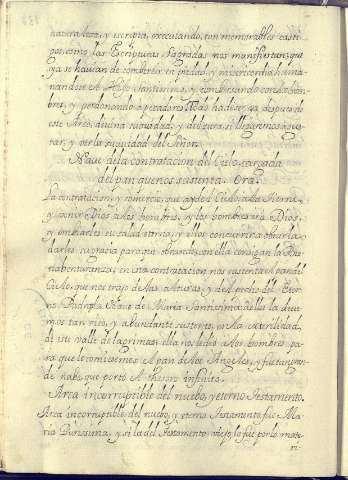 havia Arco, y escripta, executando, con memorables casti-
pos como las Escripturas Sagradas nos manifiestan; que
ya se havian de convertir en piedad, y misericordia huma
nandose el Altisº Santissimo, y conversando con los hom
bres, y perdonando a pecadores. Mas ha de ser ya despues de
este Arco, divina suavidad, y dulzura si llegaremos a gus
tar, y ver la suavidad del Señor.
Nave de la contratacion del Cielo, cargada
del pan que nos sustenta. Ora.
La contratacion, y comercio, que ay de el Cielo a la tierra,
y entre Dios a los hombres, y los hombres para Dios,
y embiarles su salud eterna, y ellos concurrir a obrarla,
darles su gracia para que obrando, con ella consigan la Bie
naventuranza; en esta contratacion nos sustenta el pan del
Cielo, que nos trajo de las Alturas, y de el pecho del Eter
no Padre, la Nave de Maria Santissima, de ella tu
vimos tan rico, y abundante sustento, en la esterilidad,
de este valle de lagrimas ella nos le dio a los hombres, pa
ra que le comiesemos el pan de los Angeles, y fue tan gran
de nabe que portó el thesoro infinito.
Arca incorruptible del nuebo, y eterno testamento.
Arca incorruptible, del nuebo, y eterno Testamento fue Ma
ria Purissima, y si la del testamento viejo lo fue por lo mate
ri